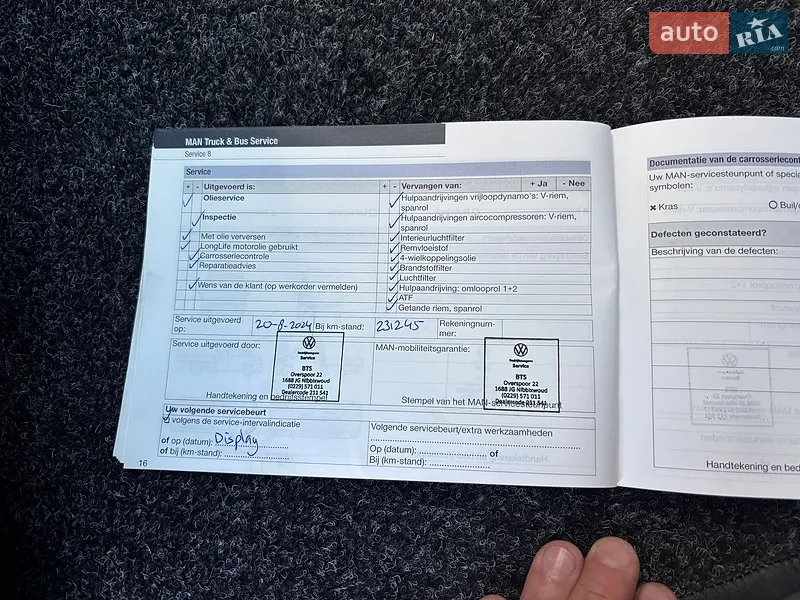 auto RIA .com
MAN Truck & Bus Service
Service 8
Service
+ - Uitgevoerd is:
Olieservice
Inspectie
Met olie verversen
LongLife motorolie gebruikt
Carrosseriecontrole
Reparatieadvies
Wens van de klant (op werkorder vermelden)
+ - Vervangen van: + Ja - Nee
Hulpaandrijvingen vrijloopdynamo's: V-riem,
spanrol
Hulpaandrijvingen aircocompressoren: V-riem,
spanrol
Interieurluchtfilter
Remvloeistof
4-wielkoppelingsolie
Brandstoffilter
Luchtfilter
Hulpaandrijving: omlooprol 1+2
ATF
Getande riem, spanrol
Service uitgevoerd
op: 20-8-2024 Bij km-stand: 231245 Rekeningnum-
mer:
Service uitgevoerd door:
Bedrijfswagens
Service
BTS
Overspoor 22
1688 JG Nibbixwoud
(0229) 571 011
Dealercode 211 541
Handtekening en bedrijfsstempel
MAN-mobiliteitsgarantie:
Bedrijfswagens
Service
BTS
Overspoor 22
1688 JG Nibbixwoud
(0229) 571 011
Dealercode 211 541
Stempel van het MAN-servicesteunpunt
Uw volgende servicebeurt
volgens de service-intervalindicatie
of op (datum): Display
of bij (km-stand):
Volgende servicebeurt/extra werkzaamheden
Op (datum): of
Bij (km-stand):
16
Documentatie van de carrosseriecont
Uw MAN-servicesteunpunt of specia
symbolen:
Kras Buil/
Defecten geconstateerd?
Beschrijving van de defecten:
Handtekening en bed